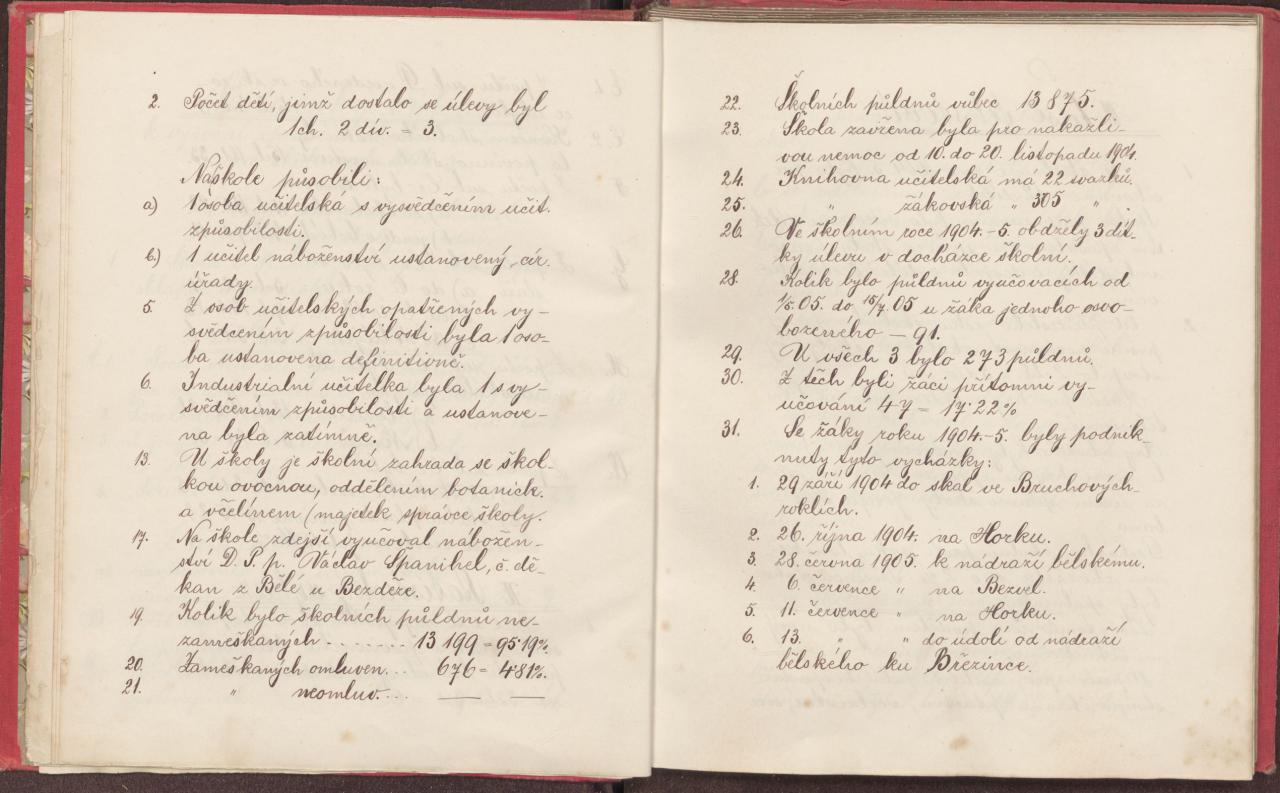 2. Počet dětí, jimž dostalo se úlevy byl
1ch. 2 dív. = 3.
Na škole působili:
a) 1 osoba učitelská s vysvědčením učit.
způsobilosti.
b.) 1 učitel náboženství ustanovený cír.
úřady.
5. Z osob učitelských opatřených vy-
svědčením způsobilosti byla 1 oso-
ba ustanovena definitivně.
6. Industrialní učitelka byla 1 s vy-
svědčením způsobilosti a ustanove-
na byla zatímně.
13. U školy je školní zahrada se škol-
kou ovocnou, oddělením botanick.
a včelínem (majetek správce školy.
17. Na škole zdejší vyučoval nábožen-
ství D. P. p. Václav Španihel, č. dě-
kan z Bělé u Bezděze.
19. Kolik bylo školních půldnů ne-
zameškaných ....... 13 199 = 95·19%.
20. Zameškaných omluven... 676 = 4·81%.
21. " neomluv.... — —
22. Školních půldnů vůbec 13 875.
23. Škola zavřena byla pro nakažli-
vou nemoc od 10. do 20. listopadu 1904.
24. Knihovna učitelská má 22 svazků.
25. " žákovská " 305 " .
26. Ve školním roce 1904.-5. obdržely 3 dít-
ky úlevu v docházce školní.
28. Kolik bylo půldnů vyučovacích od
1/5. 05. do 15/7. 05 u žáka jednoho osvo-
bozeného — 91.
29. U všech 3 bylo 273 půldnů.
30. Z těch byli žáci přítomni vy-
učování 47 = 17·22%
31. Se žáky roku 1904.-5. byly podnik-
nuty tyto vycházky:
1. 29 září 1904 do skal ve Bruchových-
roklích.
2. 26. října 1904. na Horku.
3. 28. června 1905. k nádraží bělskému.
4. 6. července " na Bezvel.
5. 11. července " na Horku.
6. 13. " " do údolí od nádraží
bělského ku Březince.